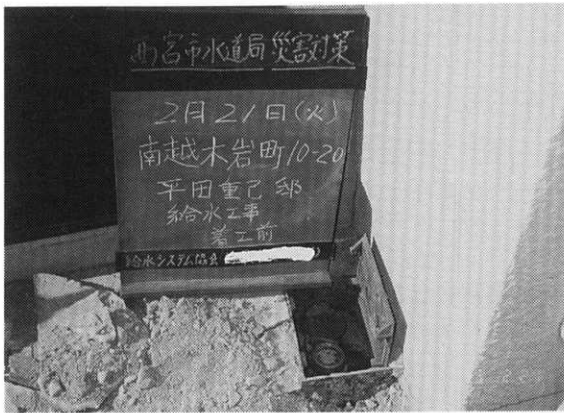 西宮市水道局 災害対策
2月21日(火)
南越木岩町10-20
平田重己 邸
給水工事
着工前
給水システム協会